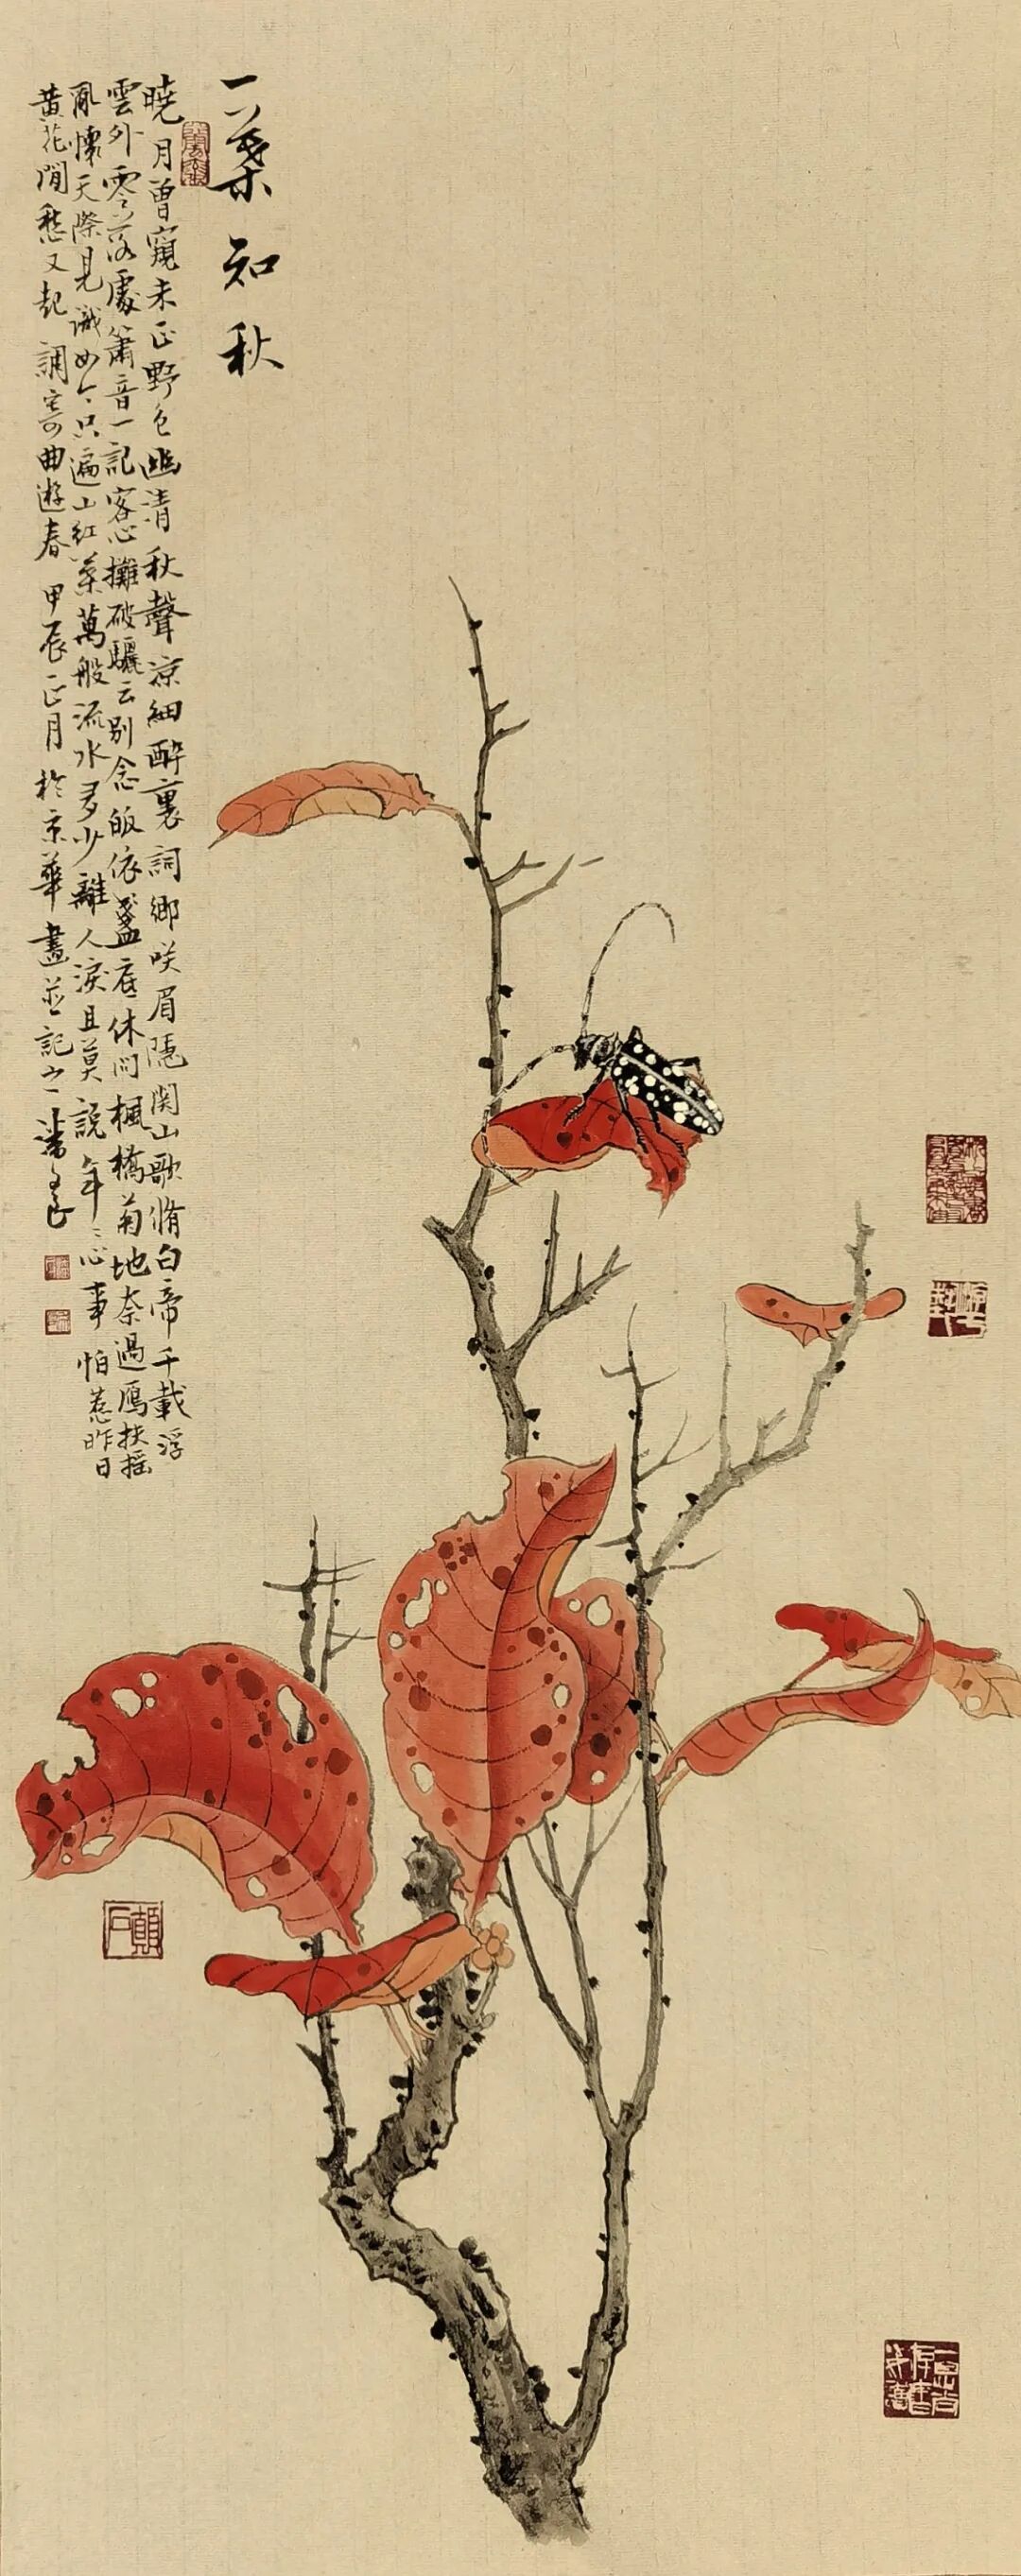 一葉知秋
曉月曾窺未正野色幽清秋聲涼細醉裏詞鄉咲眉隱関山歌脩白帝千載浮
雲外零落處簫音一記客心攤破驪云別念皈依盞底休问楓橋菊地奈過鴈扶摇
風懷天際見識如今只遍山紅葉萬般流水多少離人淚且莫說年〻心事怕惹昨日
黃花閒愁又起調寄曲遊春甲辰正月於京華畫並記之
顛